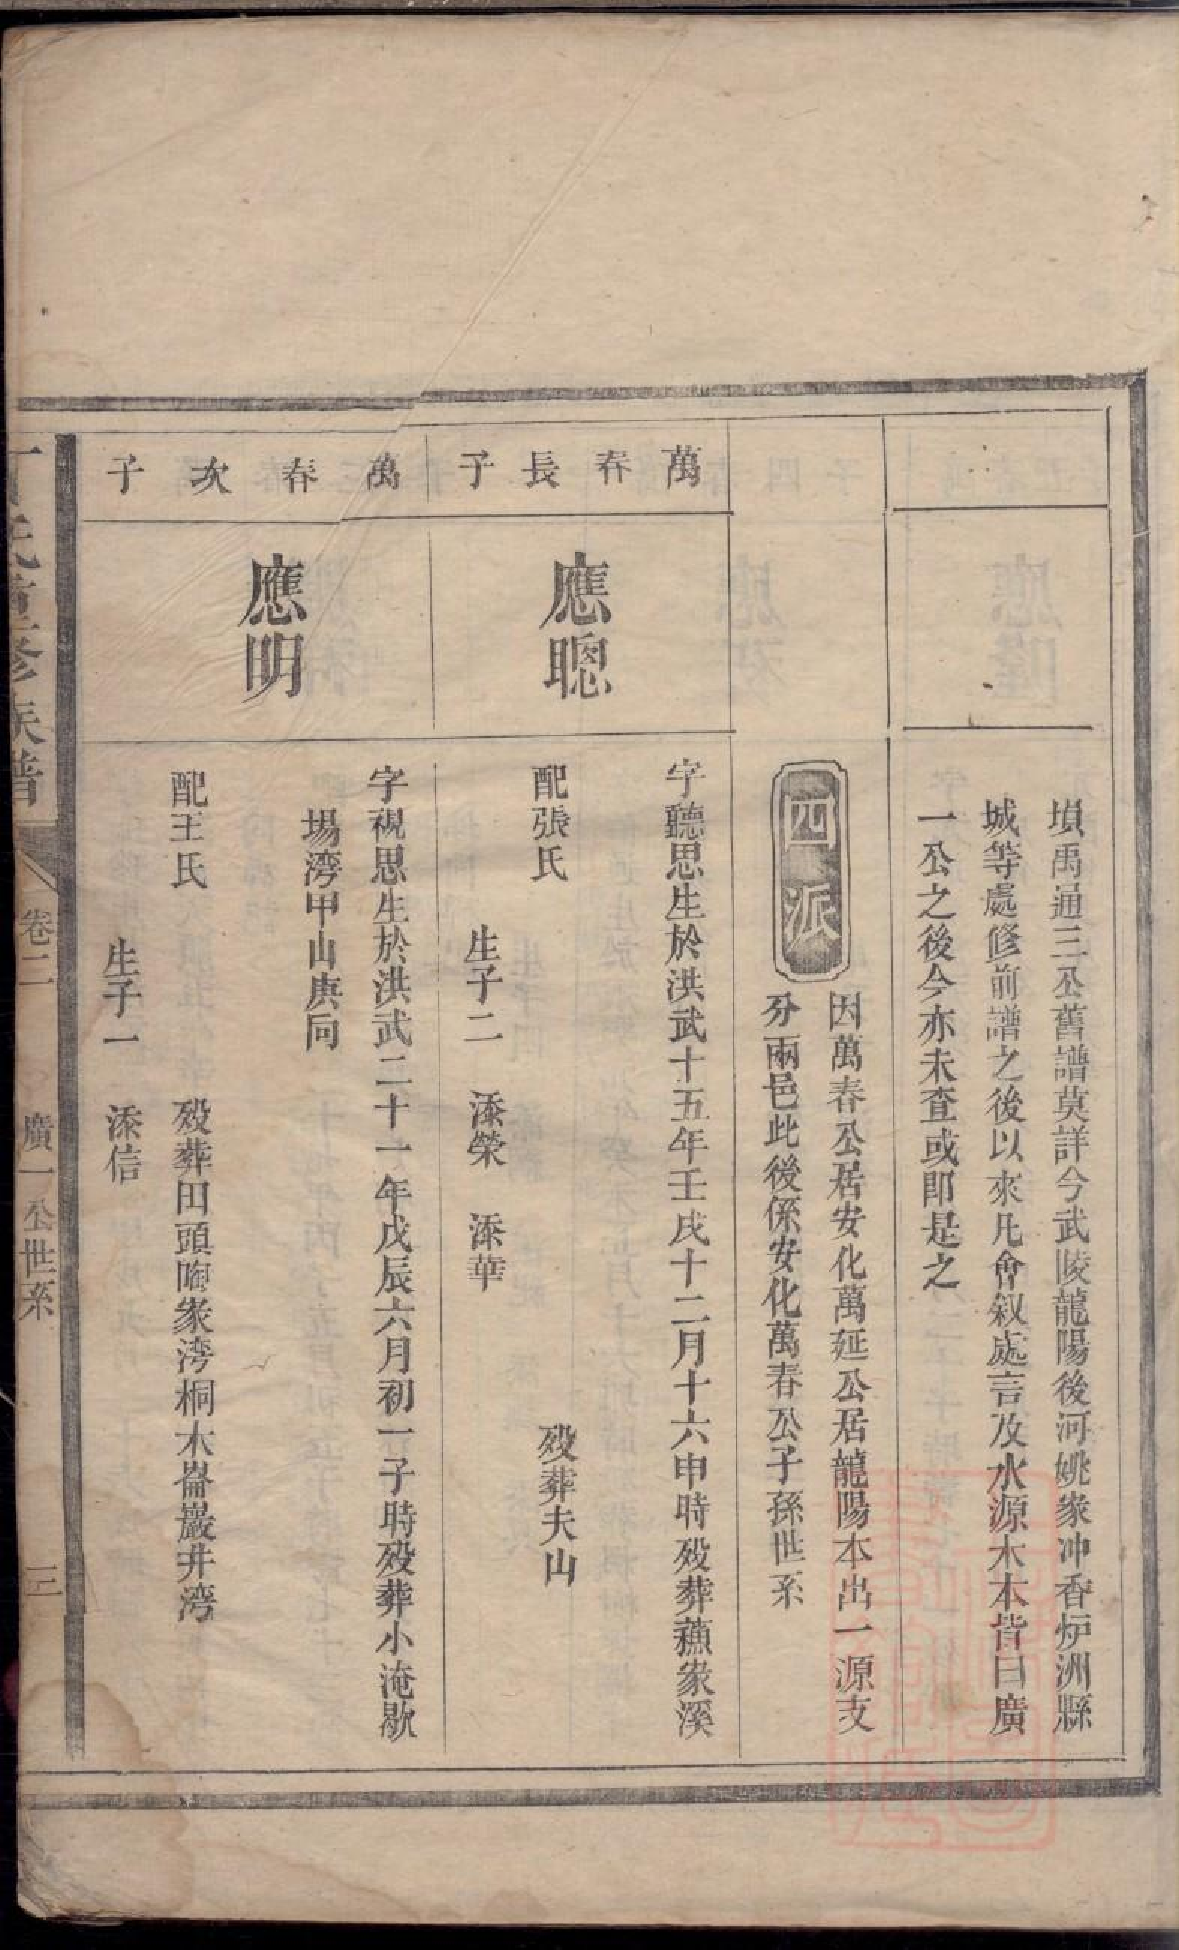 塤禹通三公舊譜莫詳今武陵龍陽後河姚家冲香炉洲縣
城等處修前譜之後以來凡會叙處言及水源木本皆曰廣
一公之後今亦未査或即是之
四派
因萬春公居安化萬延公居龍陽本出一源支
分兩邑此後係安化萬春公子孫世系
萬春長子
應聰
字聽思生於洪武十五年壬戌十二月十六申時殁葬蕉家溪
配張氏
殁葬夫山
生子二 添榮 添華
萬春次子
應明
字視思生於洪武二十一年戊辰六月初一子時殁葬小淹歇
塲湾甲山庚向
配王氏
殁葬田頭陶家湾桐木崙巖井湾
生子一 添信
氏重修族譜
卷二
廣一公世系
三